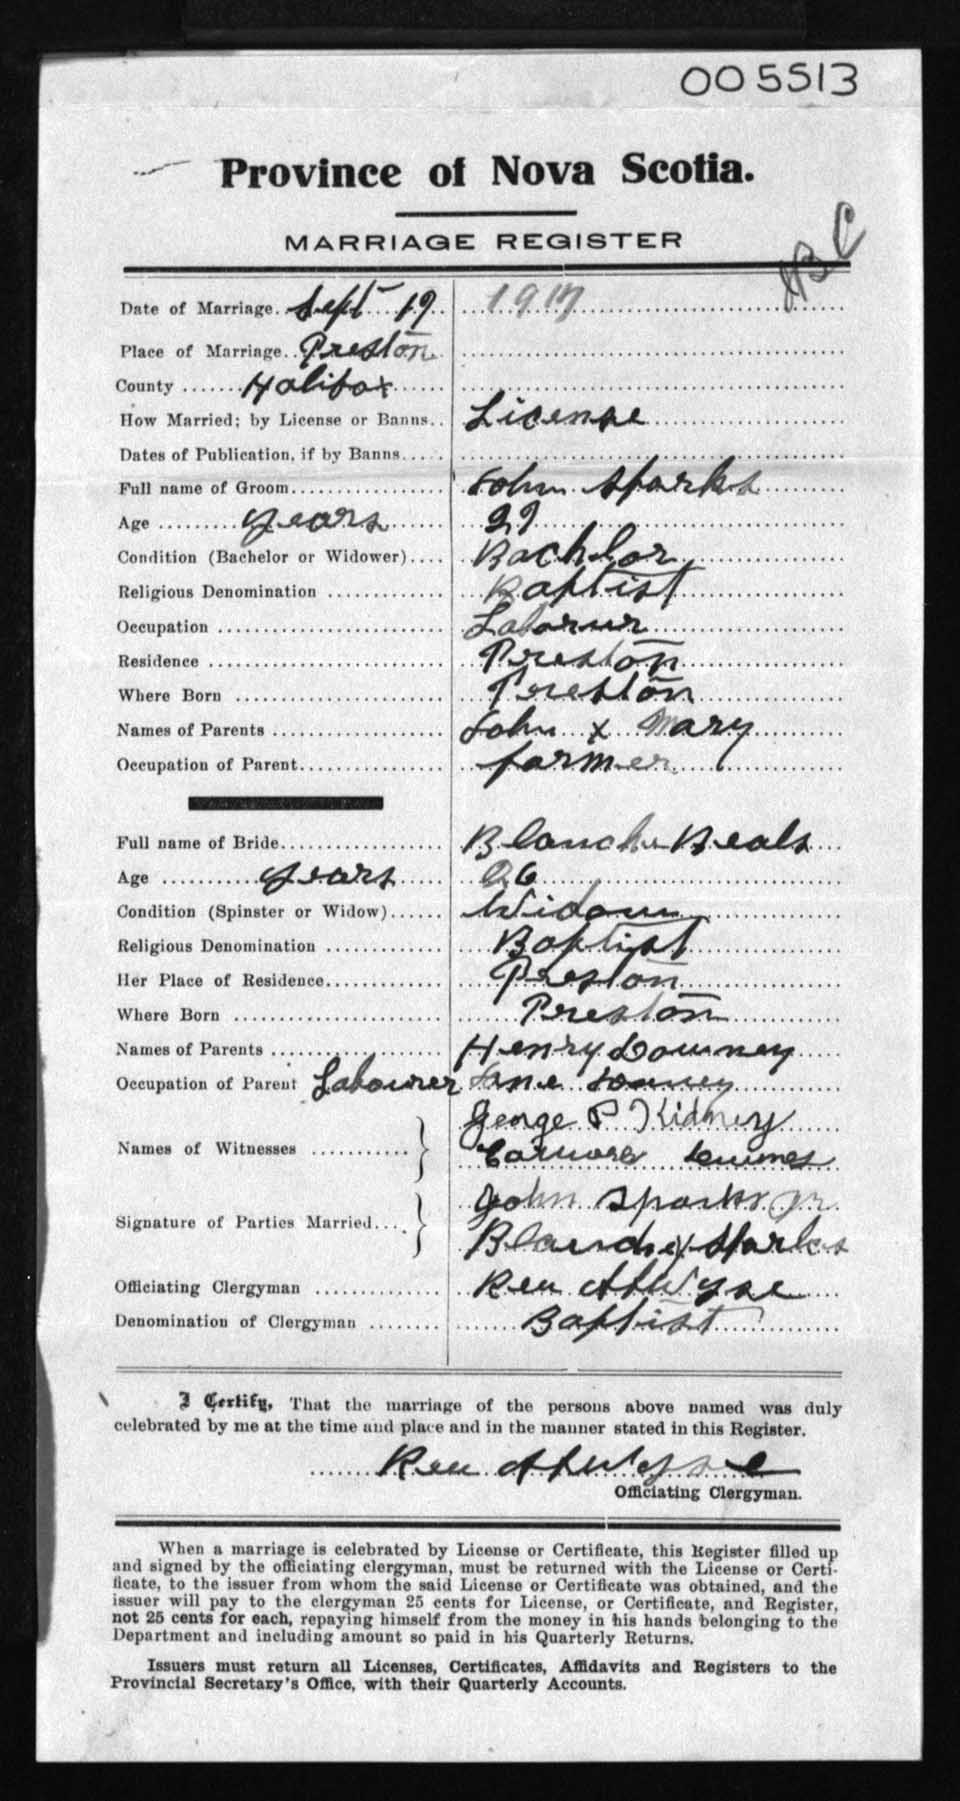 005513
Province of Nova Scotia.
MARRIAGE REGISTER
Date of Marriage. Sept 19 1917
Place of Marriage. Preston
County Halifax
How Married; by License or Banns. License
Dates of Publication, if by Banns
Full name of Groom John Sparks
Age years 29
Condition (Bachelor or Widower) Bachelor
Religious Denomination Baptist
Occupation Laborur
Residence Preston
Where Born Preston
Names of Parents John x Mary
Occupation of Parent farmer
Full name of Bride Blanche Beals
Age years 26
Condition (Spinster or Widow) Widow
Religious Denomination Baptist
Her Place of Residence Preston
Where Born Preston
Names of Parents Henry Downey
Occupation of Parent Labourer Jane
George P Kidney
Names of Witnesses
John Sparks Jr
Signature of Parties Married
Blanche x Sparks
Officiating Clergyman Rev A Wyse
Denomination of Clergyman Baptist
I Certify, That the marriage of the persons above named was duly
celebrated by me at the time and place and in the manner stated in this Register.
Rev A Wysse
Officiating Clergyman.
When a marriage is celebrated by License or Certificate, this Register filled up
and signed by the officiating clergyman, must be returned with the License or Certi-
ficate, to the issuer from whom the said License or Certificate was obtained, and the
issuer will pay to the clergyman 25 cents for License, or Certificate, and Register,
not 25 cents for each, repaying himself from the money in his hands belonging to the
Department and including amount so paid in his Quarterly Returns.
Issuers must return all Licenses, Certificates, Affidavits and Registers to the
Provincial Secretary's Office, with their Quarterly Accounts.